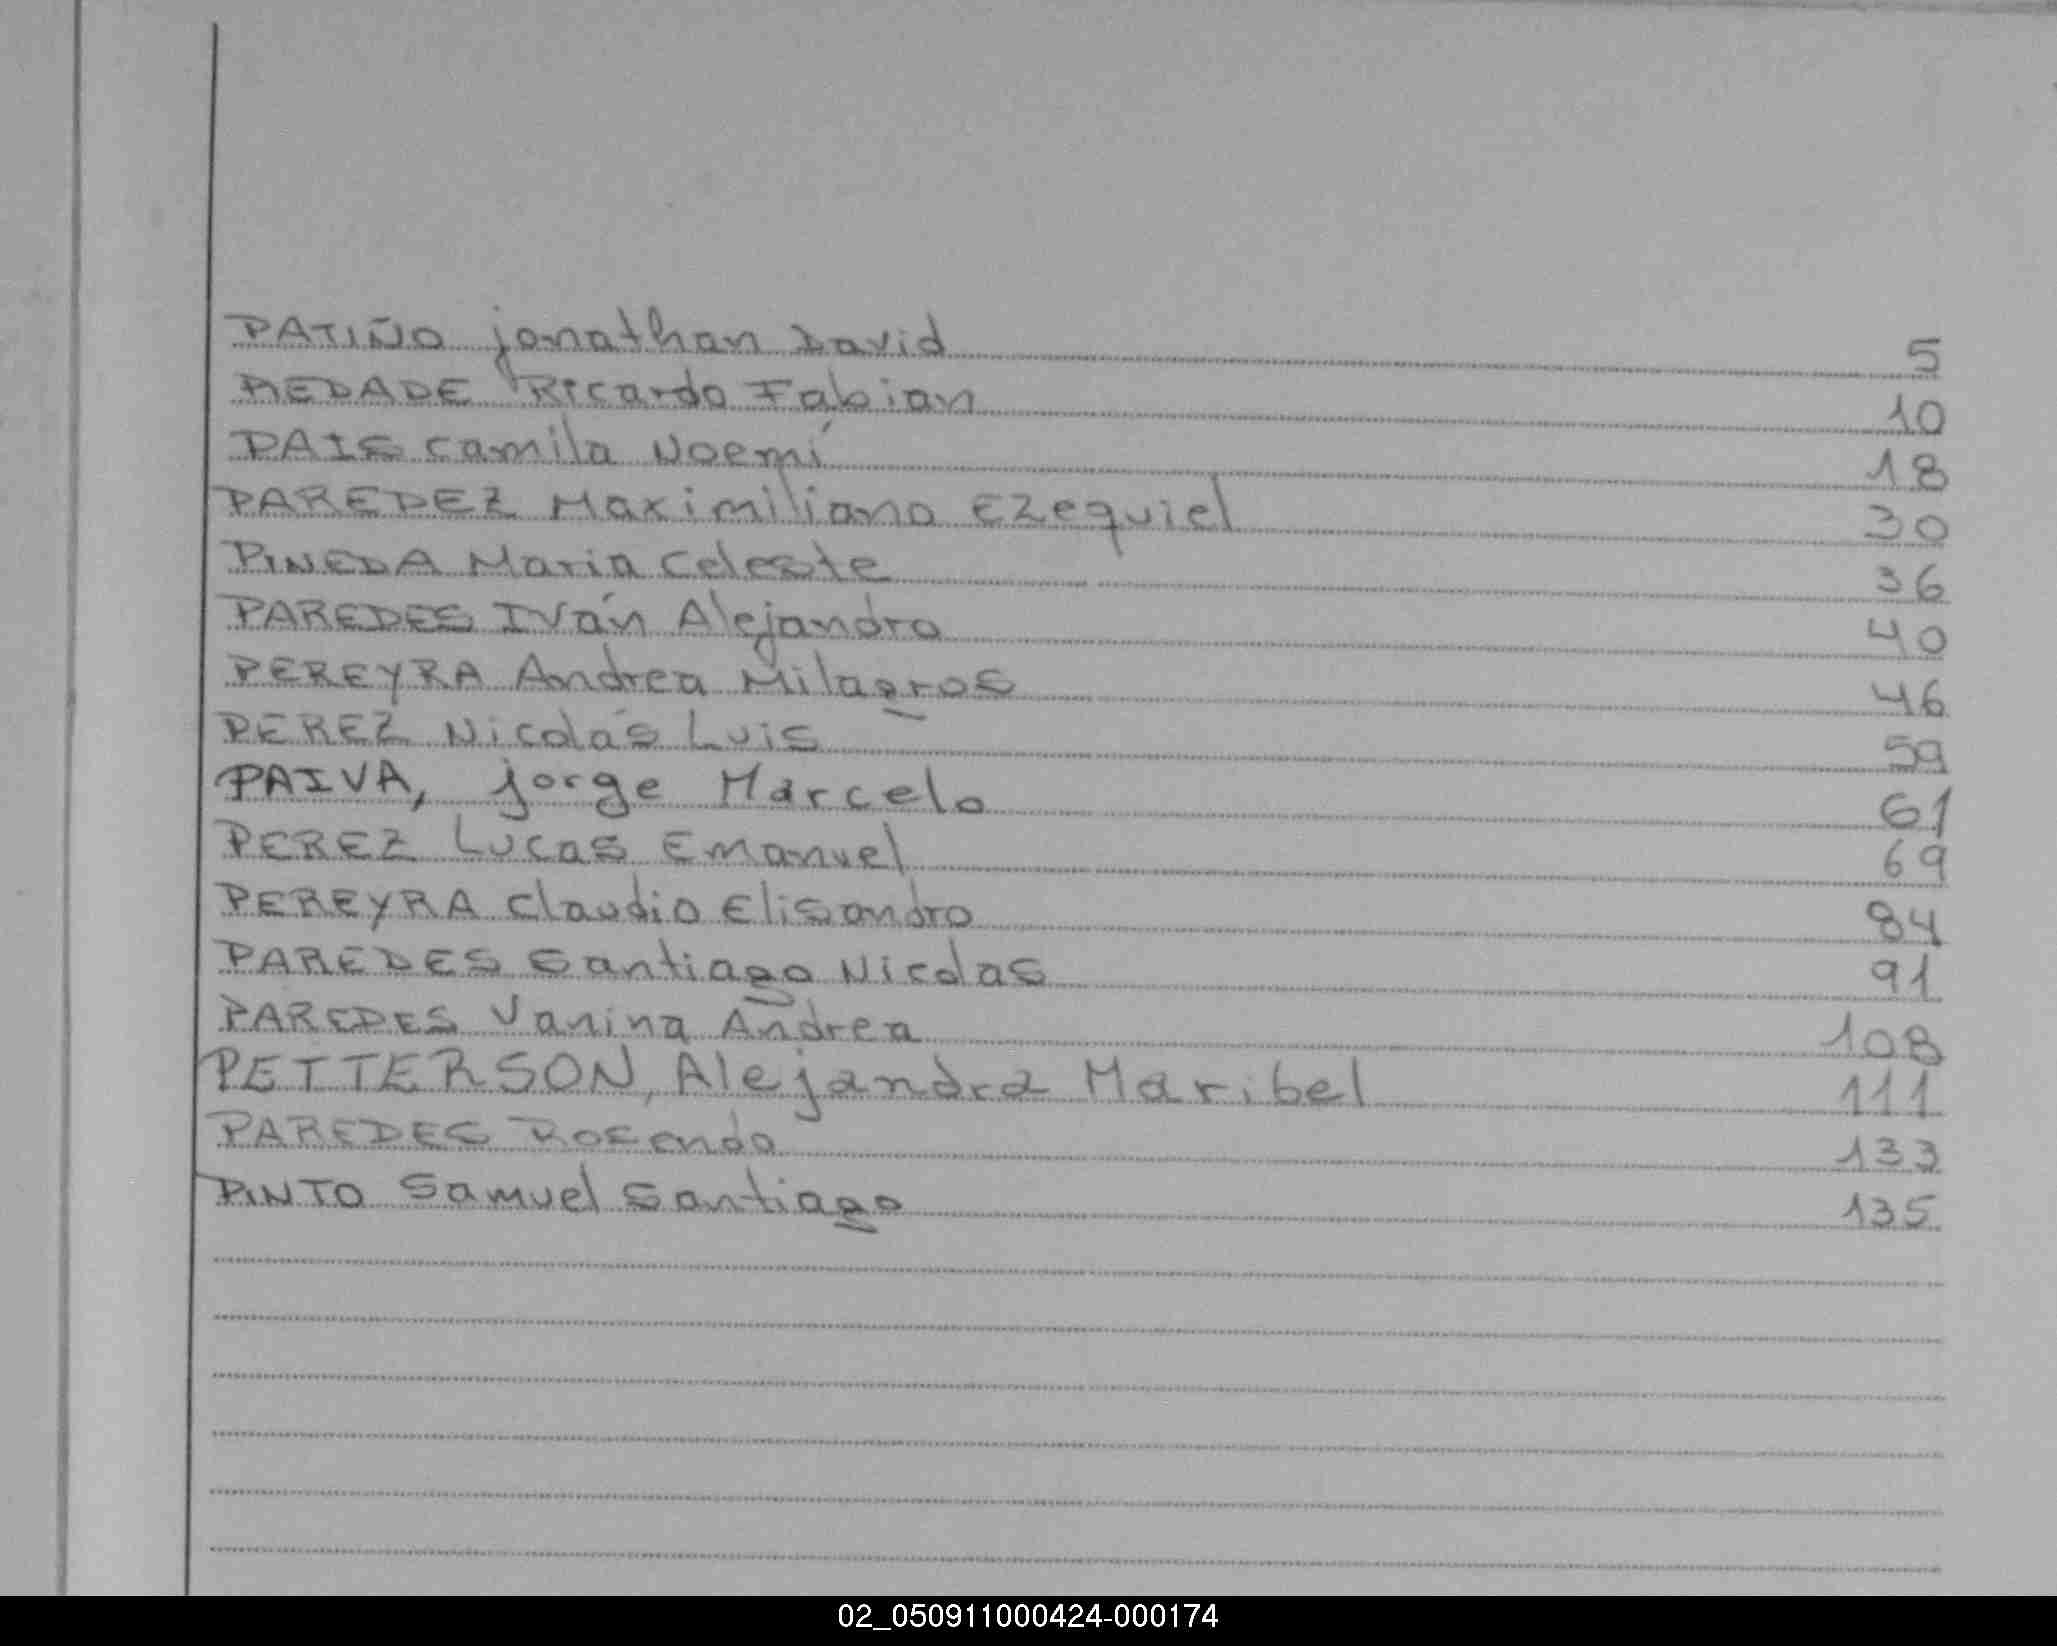 PATIÑO jonathan David 5
PIEDADE Ricardo Fabian 10
PAIS camila Noemí 18
PAREDEZ Maximiliano Ezequiel 30
PINEDA Maria Celeste 36
PAREDES Iván Alejandro 40
PEREYRA Andrea Milagros 46
PEREZ Nicolás Luis 59
PAIVA, jorge Marcelo 61
PEREZ Lucas Emanuel 69
PEREYRA Claudio Elisandro 84
PAREDES Santiago Nicolas 91
PAREDES Vanina Andrea 108
PETTERSON, Alejandra Maribel 111
PAREDES Rosendo 133
PINTO Samuel Santiago 135
02_050911000424-000174